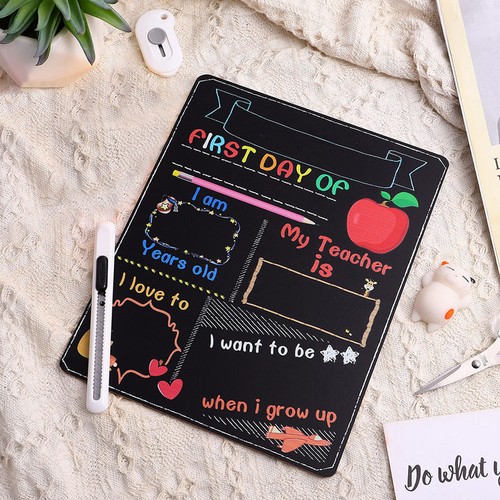 FIRST DAY OF
I am
Years old
My Teacher
is
I love to
I want to be
when i grow up
Do what